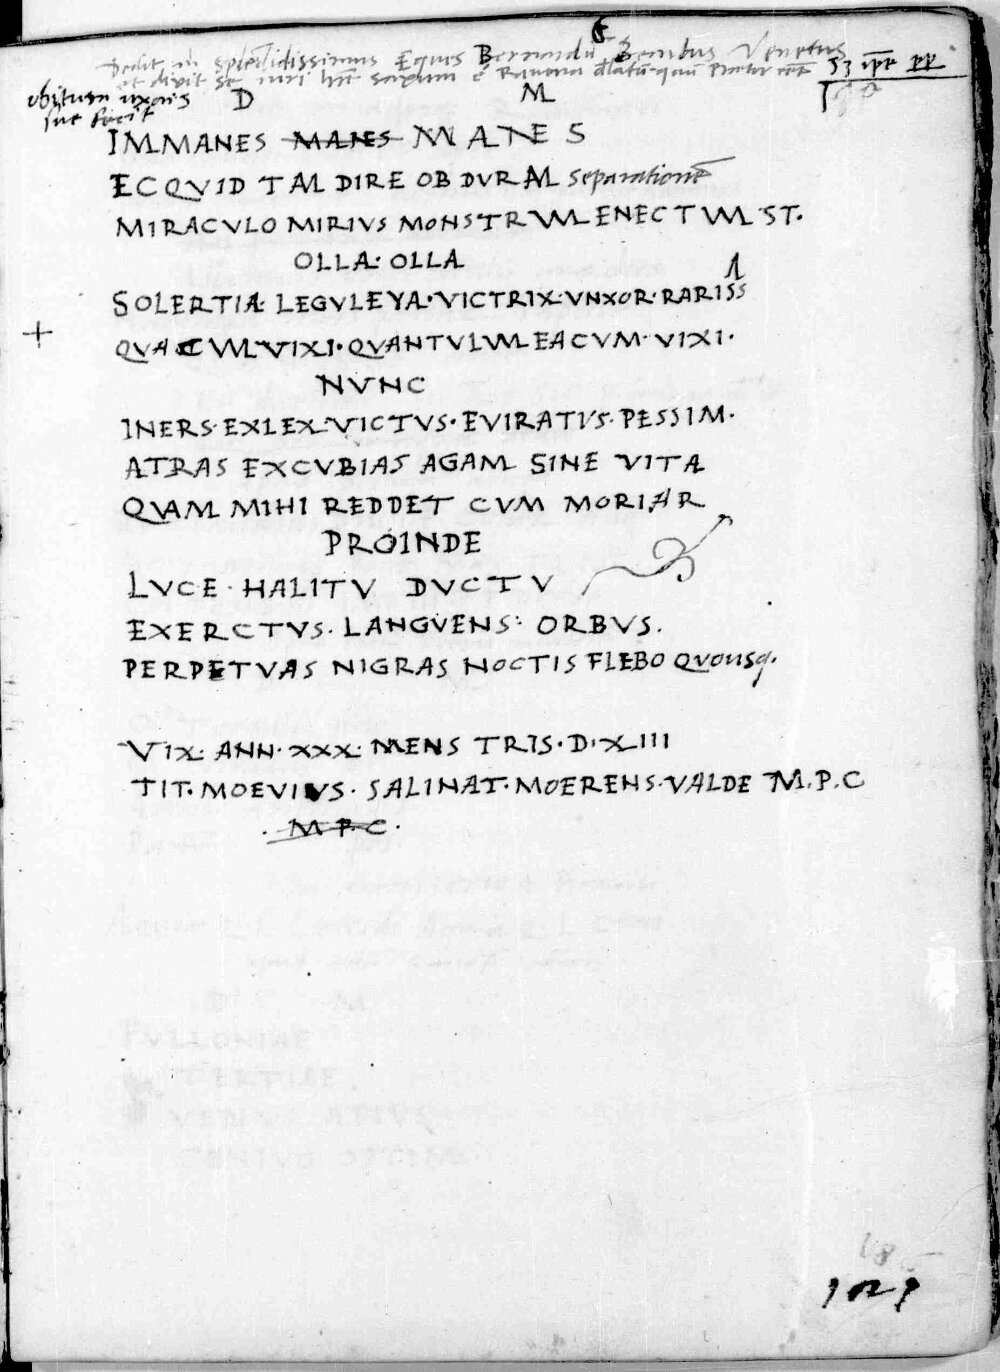 Dedit m splēdidissimus Eques Bernardū Bembus Venetus
et dixit se
obitum uxoris
sue fecit
D M
IMMANES MANES MANES
ECQVID TAM DIRE OB DVRAM separationē
MIRACVLO MIRIVS MONSTRVM ENECTVM ST.
OLLA· OLLA
SOLERTIA· LEGVLEYA· VICTRIX· VNXOR· RARISS
QVACVM VIXI· QVANTVLVM EACVM· VIXI·
NVNC
INERS· EXLEX· VICTVS· EVIRATVS· PESSIM·
ATRAS EXCVBIAS AGAM SINE VITA
QVAM MIHI REDDET CVM MORIAR
PROINDE
LVCE· HALITV DVCTV
EXERCTVS· LANGVENS· ORBVS.
PERPETVAS NIGRAS NOCTIS FLEBO QVOUSq.
VIX· ANN· XXX· MENS TRIS· D· XIII
TIT· MOEVIVS· SALINAT· MOERENS· VALDE M.P.C
· M P. C ·